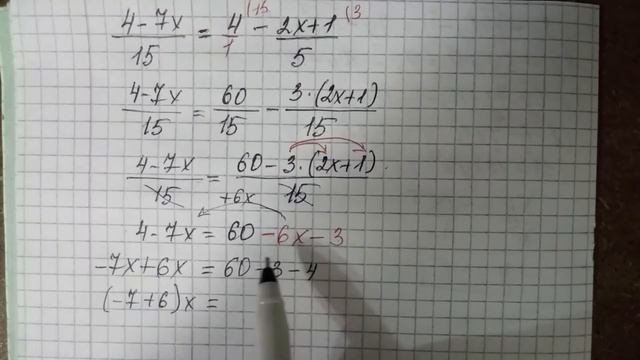 (4-7x)/15 = 4/1 (15 - (2x+1)/5 (3
(4-7x)/15 = 60/15 - 3·(2x+1)/15
(4-7x)/15 = (60-3·(2x+1))/15
+6x
4-7x = 60-6x-3
-7x+6x = 60-3-4
(-7+6)x =